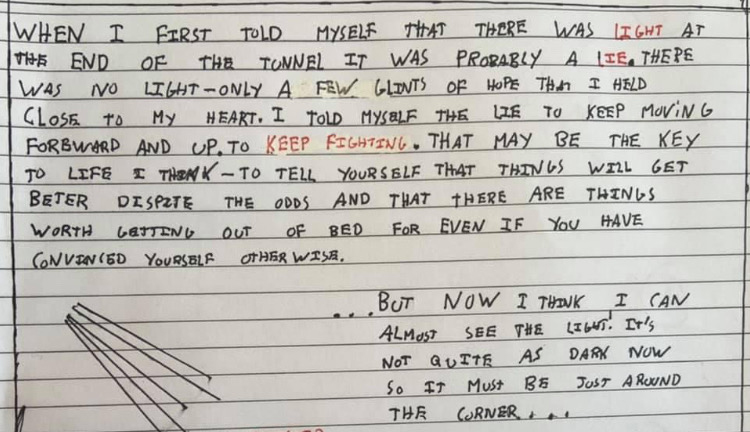 WHEN I FIRST TOLD MYSELF THAT THERE WAS LIGHT AT
THE END OF THE TUNNEL IT WAS PROBABLY A LIE. THERE
WAS NO LIGHT-ONLY A FEW GLINTS OF HOPE THAT I HELD
CLOSE TO MY HEART. I TOLD MYSELF THE LIE TO KEEP MOVING
FOREWARD AND UP. TO KEEP FIGHTING. THAT MAY BE THE KEY
TO LIFE I THINK - TO TELL YOURSELF THAT THINGS WILL GET
BETER DISPITE THE ODDS AND THAT THERE ARE THINGS
WORTH GETTING OUT OF BED FOR EVEN IF YOU HAVE
CONVINCED YOURSELF OTHERWISE.
...BUT NOW I THINK I CAN
ALMOST SEE THE LIGHT. IT'S
NOT QUITE AS DARK NOW
SO IT MUST BE JUST AROUND
THE CORNER....